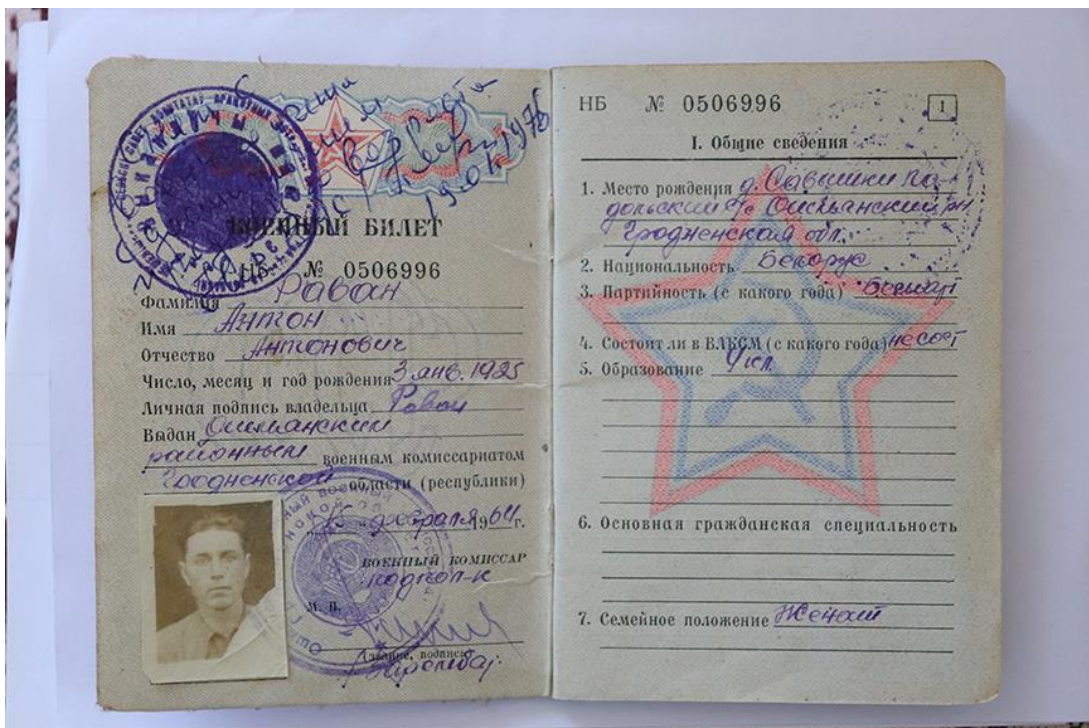 ВОЕННЫЙ БИЛЕТ
НБ № 0506996
Фамилия Раван
Имя Антон
Отчество Антонович
Число, месяц и год рождения 3 янв. 1925
Личная подпись владельца Раван
Выдан Ошмянским
районным военным комиссариатом
Гродненской области (республики)
февраля 1964 г.
ВОЕННЫЙ КОМИССАР
подпол-к
М. П.
(звание, подпись)
НБ № 0506996
1
I. Общие сведения
1. Место рождения д. Савышки
Ошмянский рн
Гродненской обл.
2. Национальность Белорус
3. Партийность (с какого года)
4. Состоит ли в ВЛКСМ (с какого года) не сост
5. Образование 4 кл.
6. Основная гражданская специальность
7. Семейное положение Женат